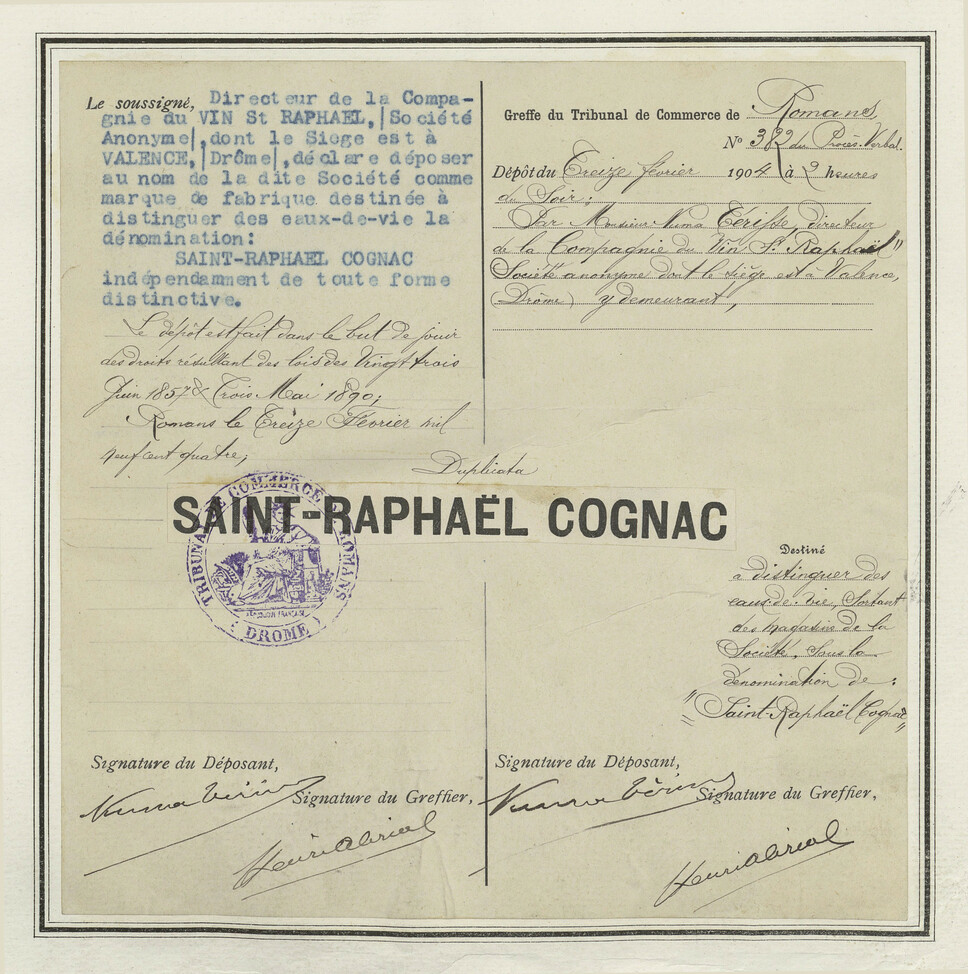 Le soussigné, Directeur de la Compa-
gnie du VIN St RAPHAEL,|Société
Anonyme|,dont le Siege est à
VALENCE,|Drôme|,déclare déposer
au nom de la dite Société comme
marque de fabrique destinée à
distinguer des eaux-de-vie la
dénomination:
SAINT-RAPHAEL COGNAC
indépendamment de toute forme
distinctive.
Le dépôt est fait dans le but de jouir
des droits résultant des lois des Vingt trois
Juin 1857 & Trois Mai 1890;
Romans le Treize Février mil
neuf cent quatre;
Greffe du Tribunal de Commerce de Romans
No 382 du Procès-Verbal.
Dépôt du Treize février 1904 à 2 heures
du Soir:
Par Monsieur Numa directeur
de la Compagnie du Vin St Raphaël"
Société anonyme dont le siège est à Valence,
(Drôme) y demeurant,
Duplicata
SAINT-RAPHAËL COGNAC
TRIBUNAL DE COMMERCE ROMANS
(DROME)
Destiné
à distinguer des
eaux-de-vie, Sortant
des magasins de la
Société, Sous la
dénomination de :
"Saint-Raphaël Cognac"
Signature du Déposant,
Numa
Signature du Greffier,
Signature du Déposant,
Numa
Signature du Greffier,